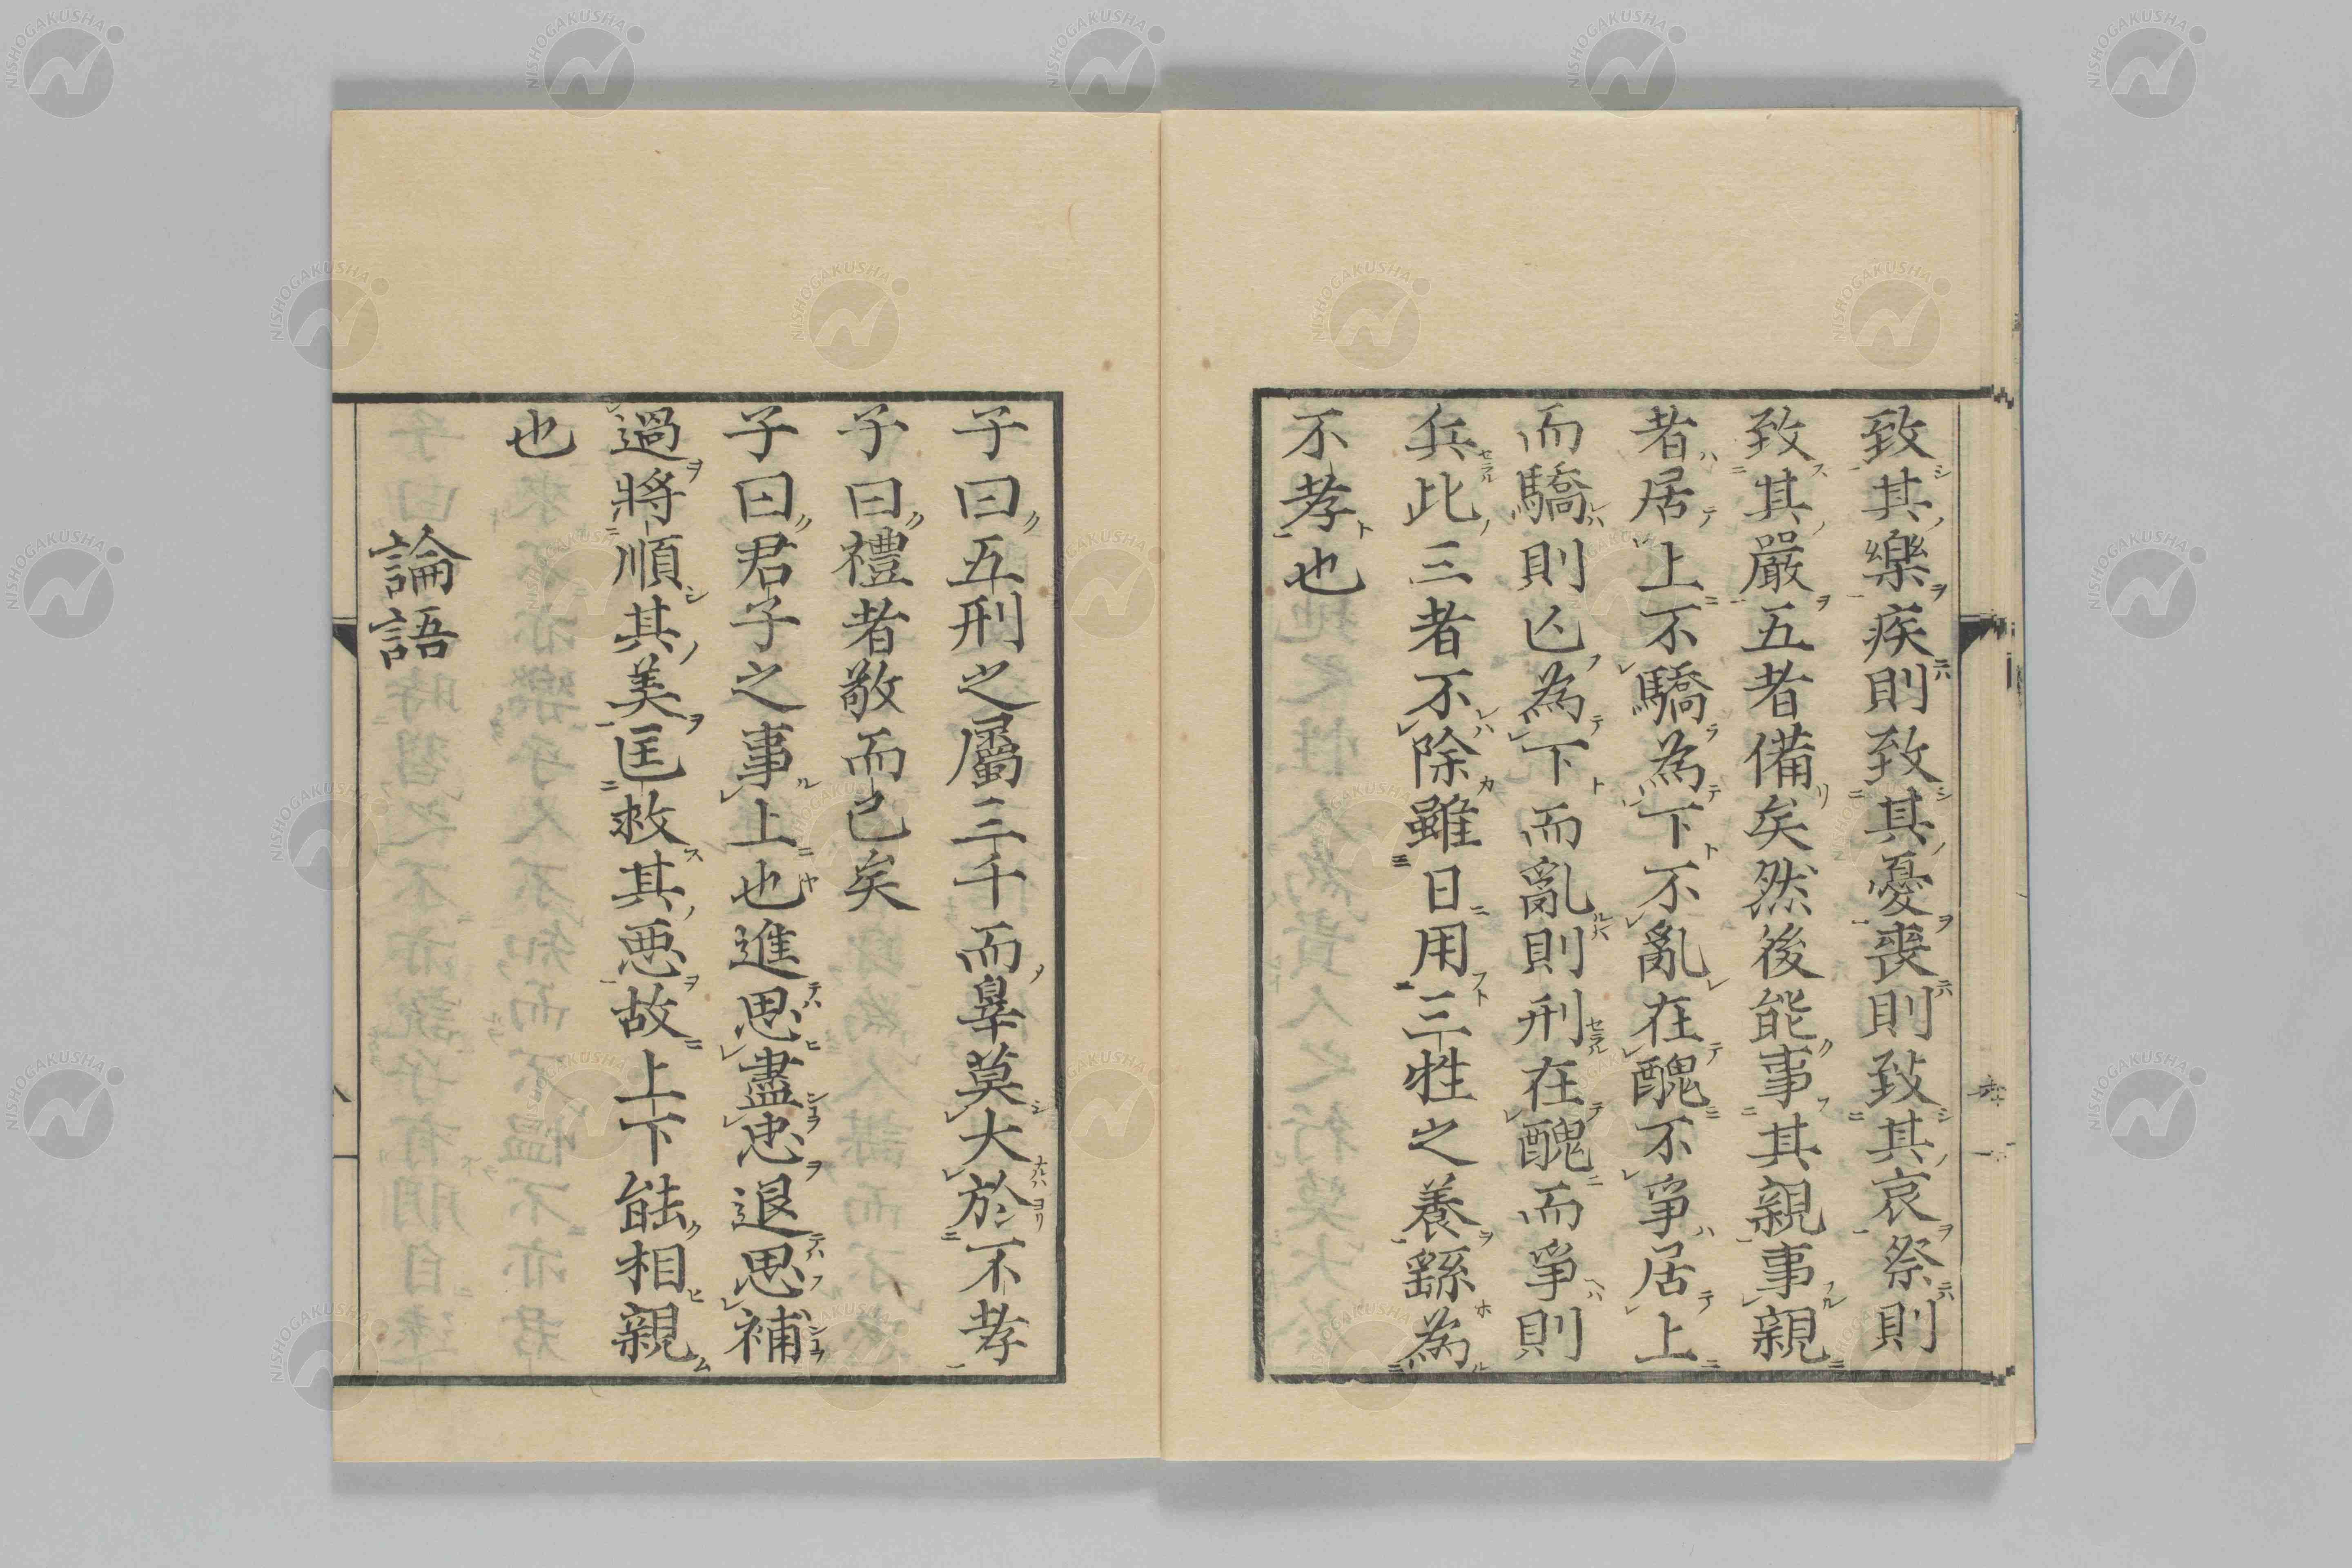 致其樂疾則致其憂喪則致其哀祭則
致其嚴五者備矣然後能事其親事親
者居上不驕為下不亂在醜不爭居上
而驕則亾為下而亂則刑在醜而爭則
兵此三者不除雖日用三牲之養繇為
不孝也
子曰五刑之屬三千而辠莫大於不孝
子曰禮者敬而已矣
子曰君子之事上也進思盡忠退思補
過將順其美匡救其惡故上下能相親
也
論語
NISHOGAKUSHA